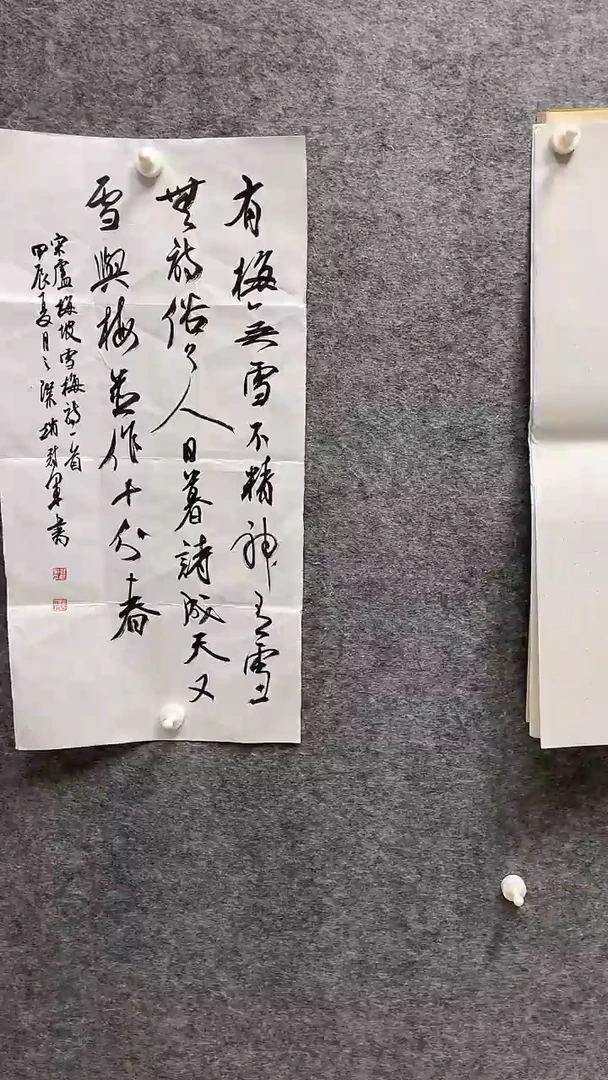 有梅無雪不精神有雪
無詩俗了人日暮詩成天又
雪與梅並作十分春
宋盧梅坡雪梅詩一首
甲辰夏月之深 書